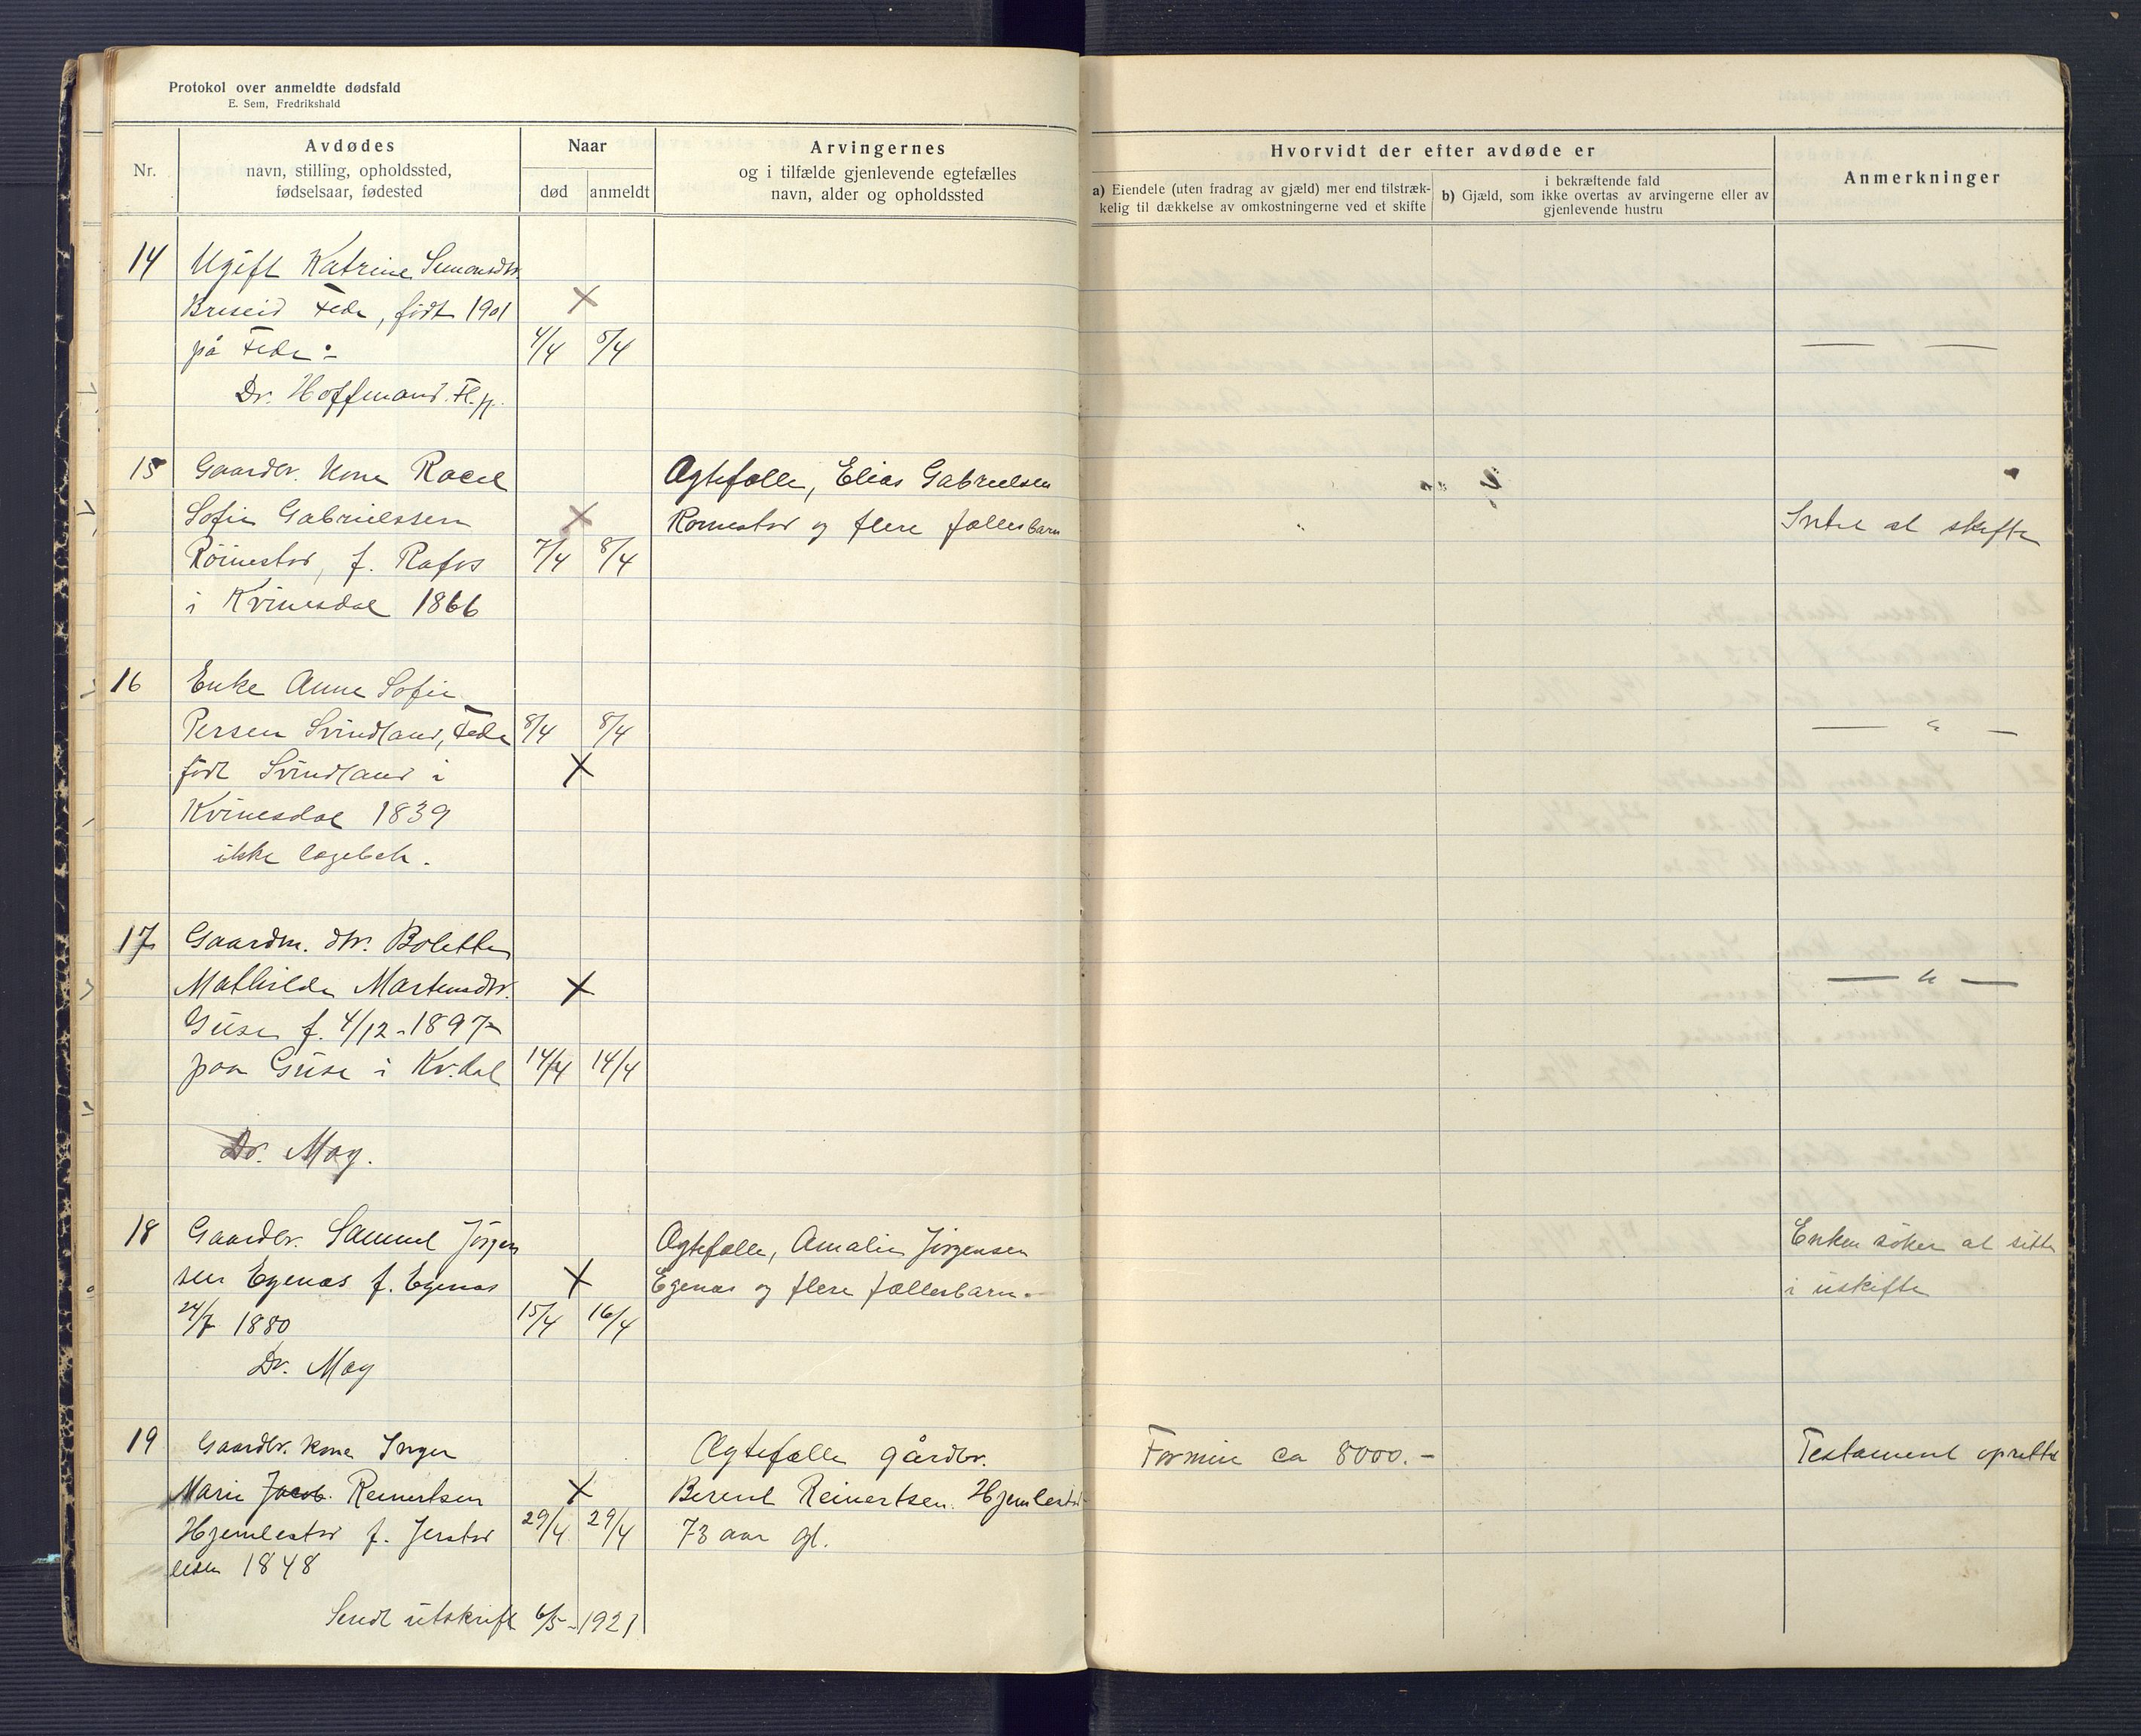 Protokol over anmeldte dødsfald
E. Sem, Fredrikshald
Nr.
Avdødes
navn, stilling, opholdssted,
fødselsaar, fødested
Naar
død anmeldt
Arvingernes
og i tilfælde gjenlevende egtefælles
navn, alder og opholdssted
Hvorvidt der efter avdøde er
a) Eiendele (uten fradrag av gjæld) mer end tilstræk-
kelig til dækkelse av omkostningerne ved et skifte
i bekræftende fald
b) Gjæld, som ikke overtas av arvingerne eller av
gjenlevende hustru
Anmerkninger
14 Ugift Katrine Simonsdtr.
Briseid Fede, født 1901 X
på Fede :- 4/4 5/4
Dr. Hoffmand. Fl.p.
15 Gaardbr. Kone Racel Ægtefælle, Elias Gabrielsen
Sofie Gabrielssen X Røinestad og flere fællesbarn " Intet at skifte
Røinestad, f. Rafos 7/4 8/4
i Kvinesdal 1866
16 Enke Anne Sofie
Persen Svindland, Fede 8/4 8/4 — " —
født Svindland i X
Kvinesdal 1839
ikke lægebeh.
17 Gaardm. dtr. Bolette
Mathilde Martensdtr. X — " —
Guse f. 4/12-1897
paa Guse i Kv.dal 14/4 14/4
Dr. May.
18 Gaardbr. Samuel Jörgen Ægtefælle, Amalie Jörgensen Enken söker at sitte
sen Egenæs f. Egenæs X Egenæs og flere fællesbarn. i uskifte
24/7 1880 15/4 16/4
Dr. May
19 Gaardbr. kone Inger Ægtefælle gårdbr. Formue ca 8000.- Testament oprettet
Marie Jacob. Reinertsen X Berent Reinertsen. Hjemlestad
Hjemlestad f. Jerstad 29/4 29/4 73 aar gl.
1848
Sendt utskrift 6/5-1921